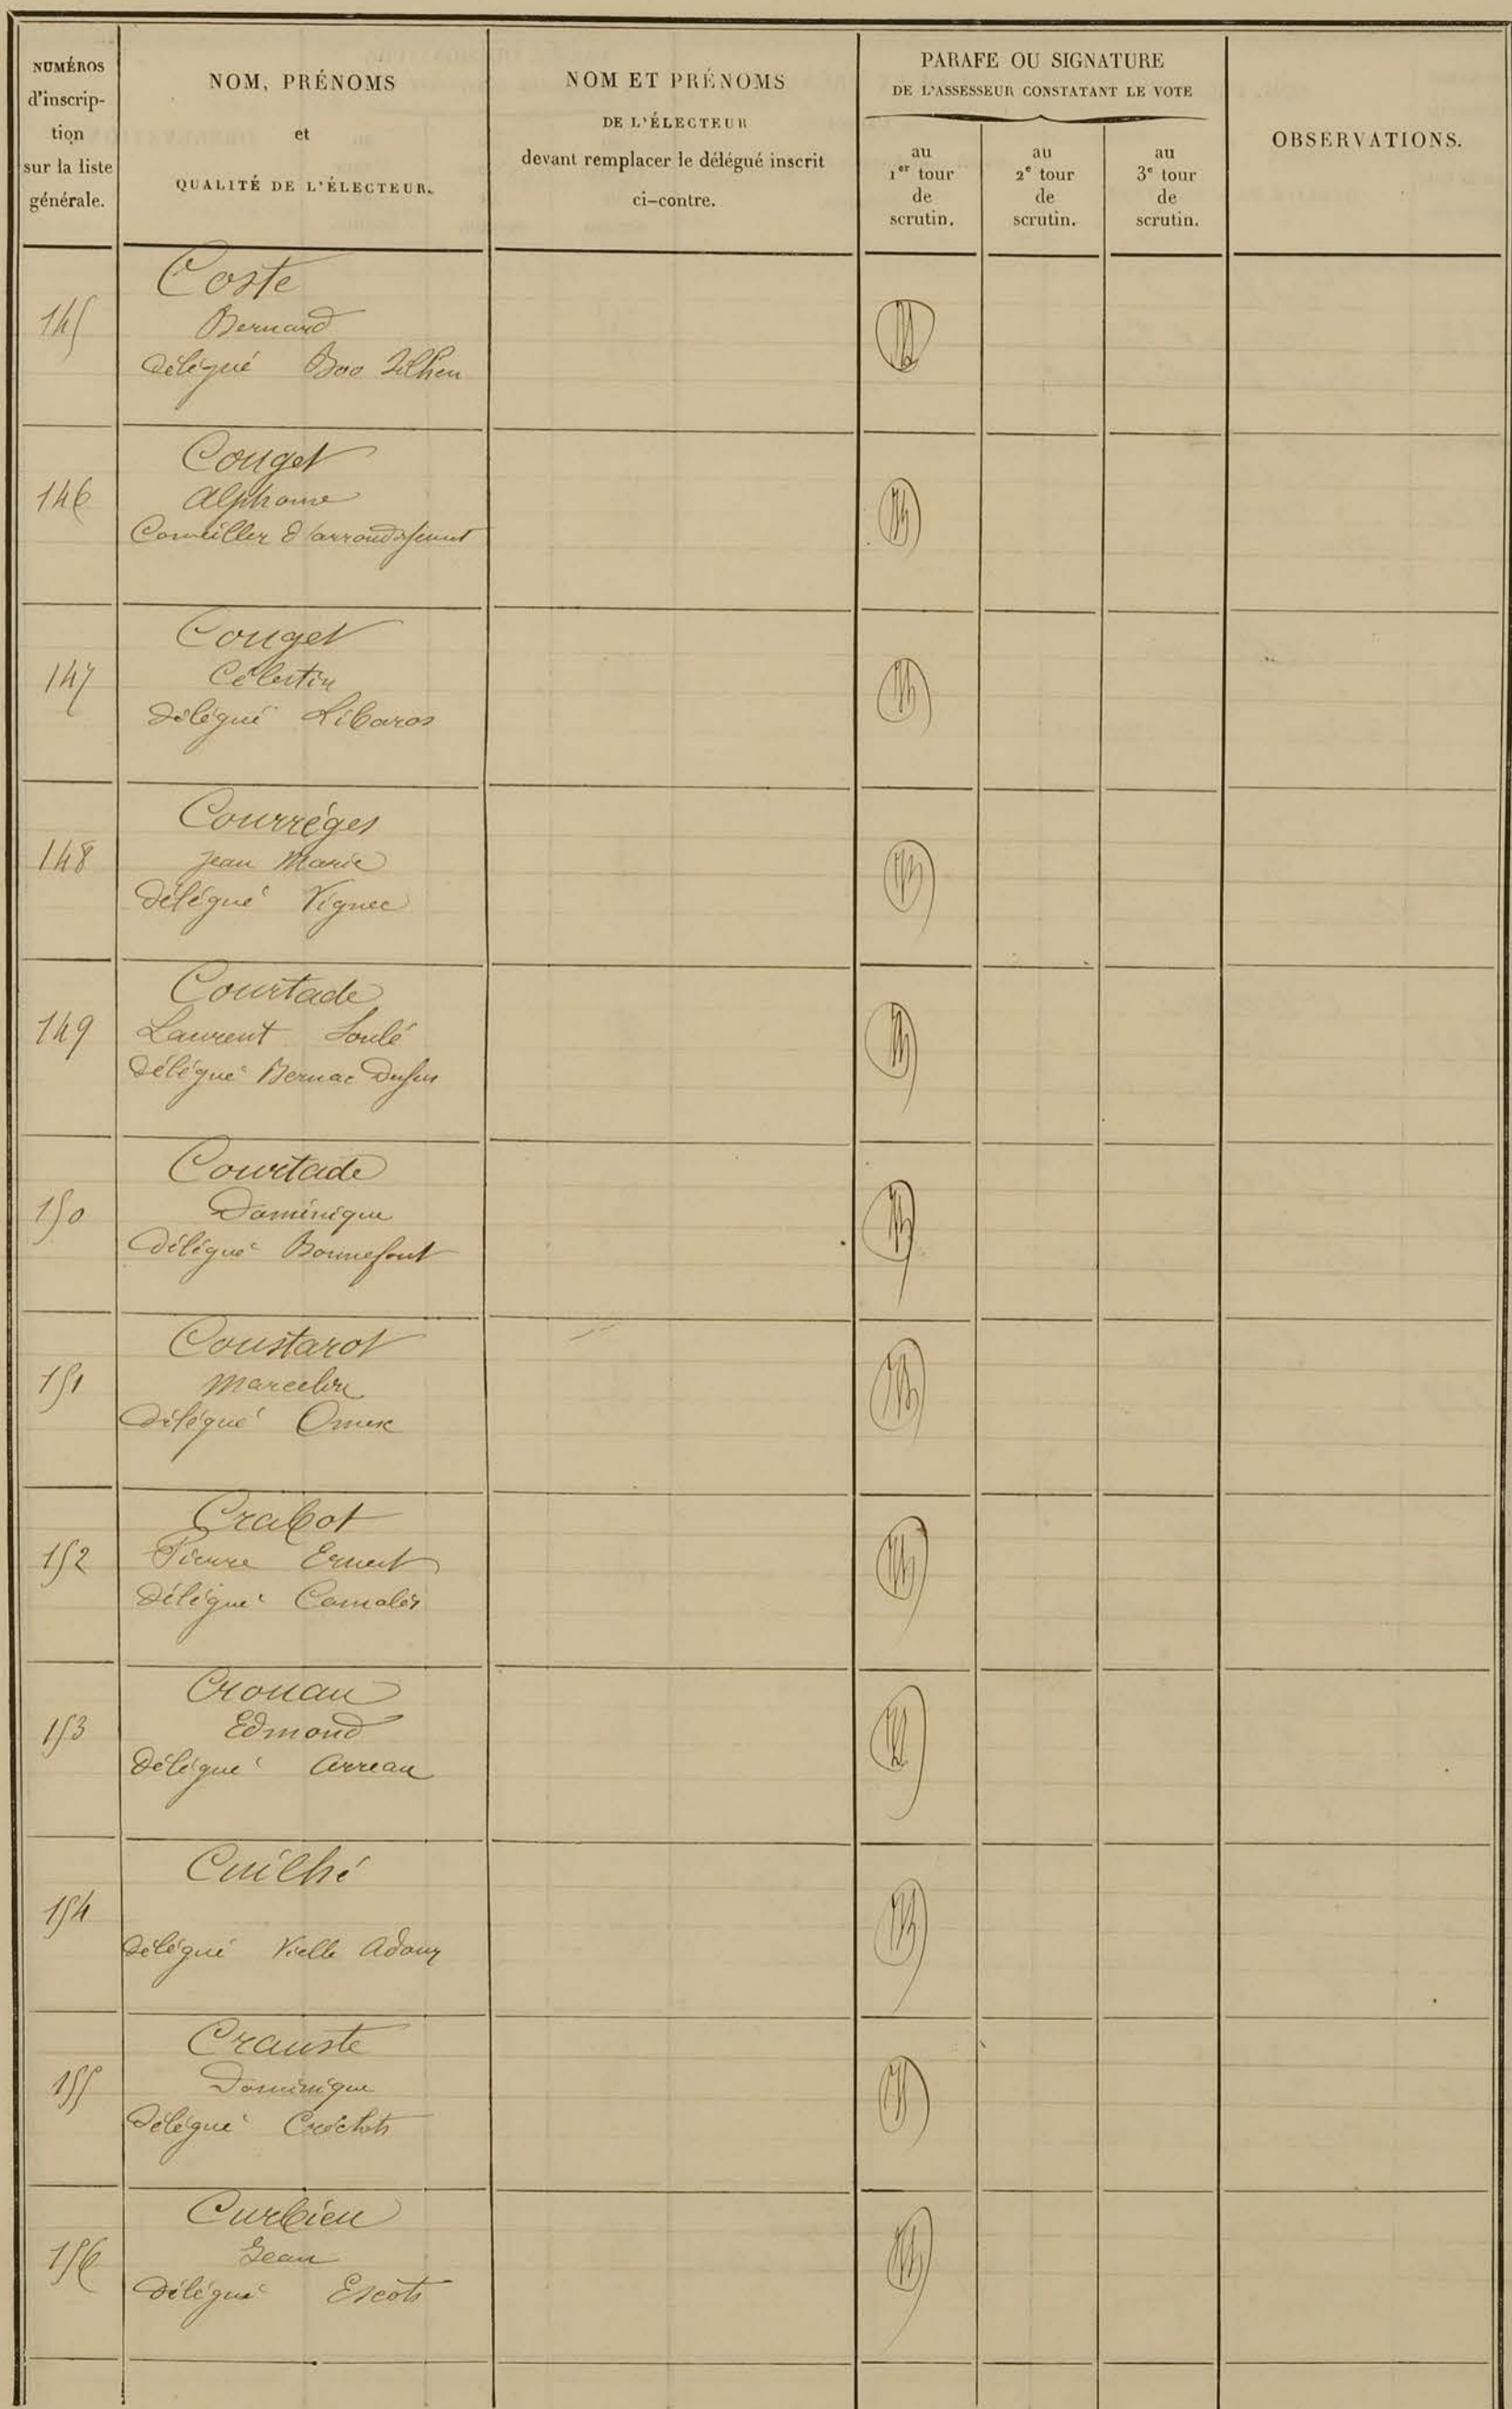 NUMÉROS
d'inscrip-
tion
sur la liste
générale.
NOM, PRÉNOMS
et
QUALITÉ DE L'ÉLECTEUR.
NOM ET PRÉNOMS
DE L'ÉLECTEUR
devant remplacer le délégué inscrit
ci-contre.
PARAFE OU SIGNATURE
DE L'ASSESSEUR CONSTATANT LE VOTE
au
1er tour
de
scrutin.
au
2e tour
de
scrutin.
au
3e tour
de
scrutin.
OBSERVATIONS.
Coste
145
Bernard
délégué Boo Silhen
Couget
146
Alphonse
Conseiller d'arrondissement
Couget
147
Célestin
Délégué Libaros
Courréges
148
Jean Marie
Délégué Vignec
Courtade
149
Laurent Soulé
Délégué Bernac Dessus
Courtade
150
Dominique
Délégué Bonnefont
Coustarot
151
Marcelin
Délégué Omex
Crabot
152
Pierre Ernest
Délégué Camalès
Crouau
153
Edmond
Délégué Arreau
Cuilhé
154
Délégué Vielle Adour
Crauste
155
Dominique
Délégué
Curbieu
156
Jean
Délégué Escots